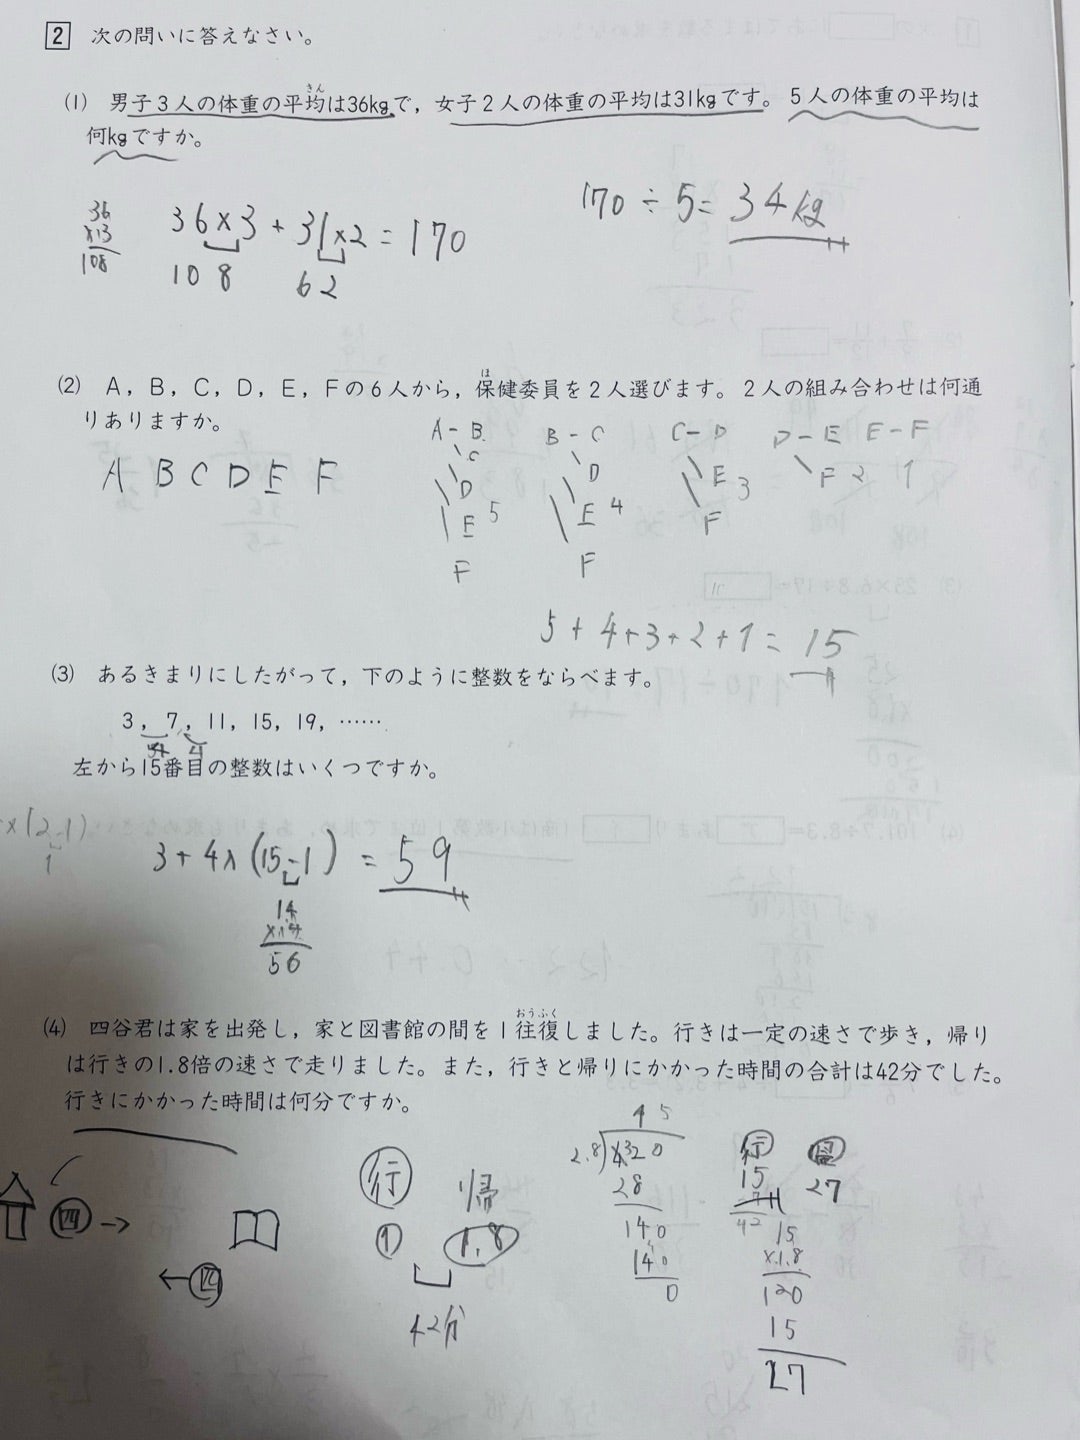 2 次の問いに答えなさい。
(1) 男子3人の体重の平均は36kgで，女子2人の体重の平均は31kgです。5人の体重の平均は
きん
何kgですか。
170÷5=34kg
36
×3
108
36×3+31×2=170
108 62
(2) A，B，C，D，E，Fの6人から，保健委員を2人選びます。2人の組み合わせは何通
ほ
りありますか。
A B C D E F
A-B
C
D
E 5
F
B-C
D
E 4
F
C-D
E 3
F
D-E
F 2
E-F
1
5+4+3+2+1=15
(3) あるきまりにしたがって，下のように整数をならべます。
3，7，11，15，19，……
4
左から15番目の整数はいくつですか。
×(2-1)
1
3+4×(15-1)=59
14
56
(4) 四谷君は家を出発し，家と図書館の間を1往復しました。行きは一定の速さで歩き，帰り
おうふく
は行きの1.8倍の速さで走りました。また，行きと帰りにかかった時間の合計は42分でした。
行きにかかった時間は何分ですか。
四→
←四
行 帰
① 1.8
42分
15
2.8)420
28
140
140
0
行
15 27
42
15
×1.8
120
15
27